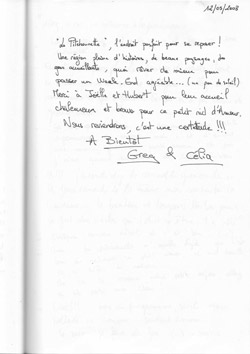 12/03/2018
"La Pitchounette", l'endroit parfait pour se reposer !
Une région pleine d'histoires, de beaux paysages, de
gens accueillants, quoi rêver de mieux pour
passer un Week-End agréable... (un peu de soleil)
Merci à Joëlle et Hubert pour leur accueil
chaleureux et bravo pour ce petit nid d'Amour.
Nous reviendrons, c'est une certitude !!!
A Bientôt
Greg & Célia